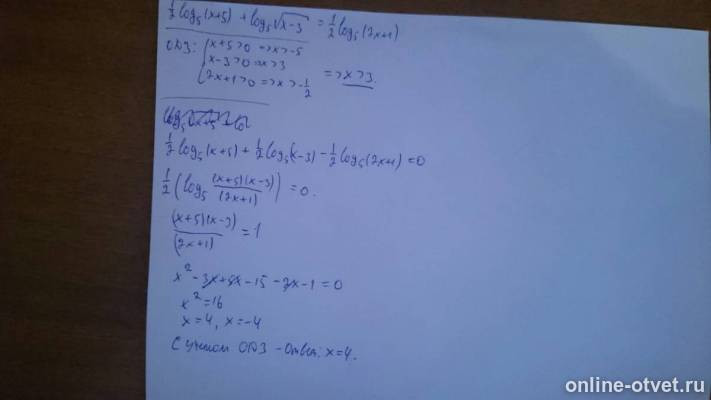 ½log₅(x+5) + log₅√x-3 = ½log₅(2x+1)
ОДЗ: { x+5>0 => x>-5
x-3>0 => x>3
2x+1>0 => x>-½
=> x>3.
½log₅(x+5) + ½log₅(x-3) - ½log₅(2x+1) = 0
½(log₅ (x+5)(x-3)/(2x+1)) = 0.
(x+5)(x-3)/(2x+1) = 1
x² - 3x + 5x - 15 - 2x - 1 = 0
x² = 16
x = 4, x = -4
С учетом ОДЗ - Ответ: x = 4.
online-otvet.ru